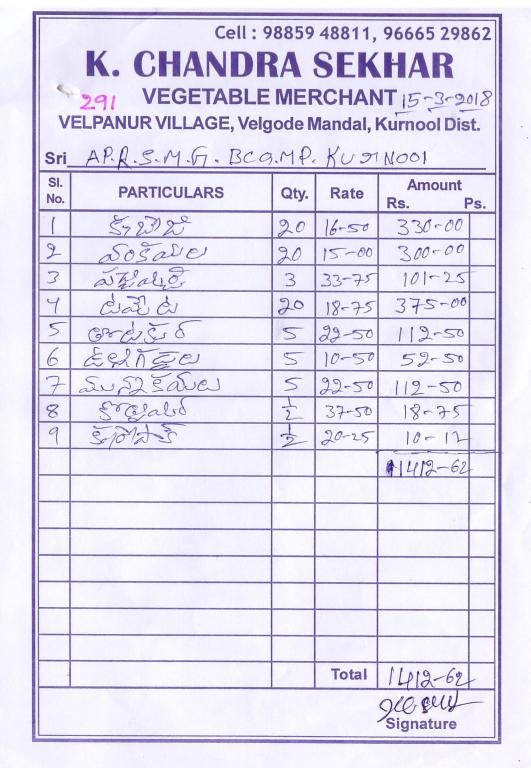 Cell : 98859 48811, 96665 29862
K. CHANDRA SEKHAR
291 VEGETABLE MERCHANT 15-3-2018
VELPANUR VILLAGE, Velgode Mandal, Kurnool Dist.
Sri AP.R.S.M.G. BCG.MP. KURNOOl
Sl. No. PARTICULARS Qty. Rate Amount Rs. Ps.
1 క్యాబేజి 20 16-50 330-00
2 వంకాయలు 20 15-00 300-00
3 పచ్చిమిర్చి 3 33-75 101-25
4 టమేట 20 18-75 375-00
5 5 22-50 112-50
6 ఉల్లిగడ్డలు 5 10-50 52-50
7 మునగకాయలు 5 22-50 112-50
8 1/2 37-50 18-75
9 1/2 20-25 10-12
1412-62
Total 1412-62
Signature